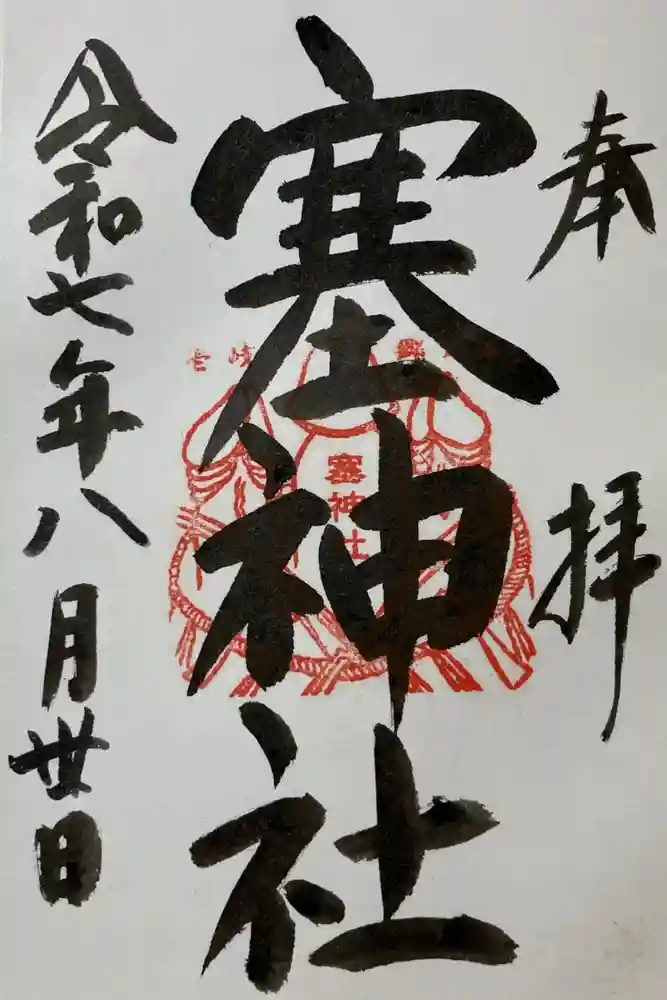 奉拝
塞神社
令和七年八月丗日
壱岐
塞神社